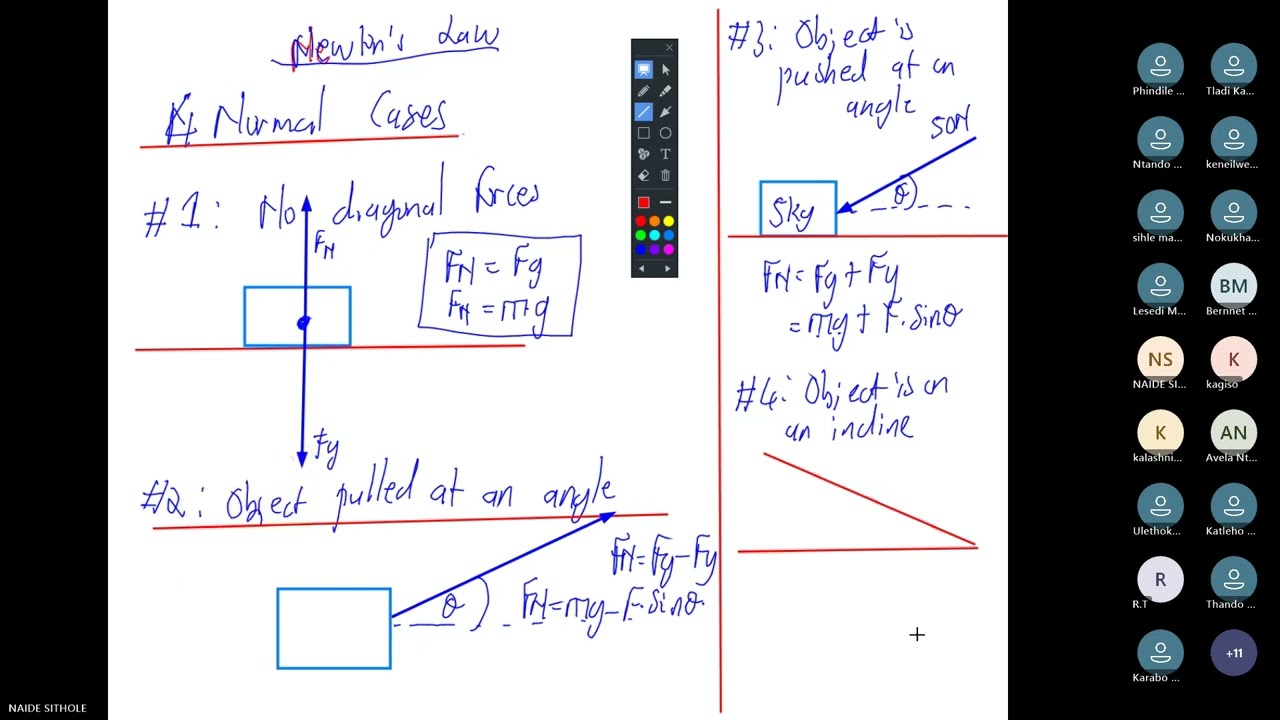 Newton's Law
4 Normal Cases
#1: No diagonal forces
FN
FN = Fg
FN = mg
Fg
#2: Object pulled at an angle
FN=Fg-Fy
θ
FN=mg-F.sinθ
#3: Object is
pushed at an
angle
50N
θ
5kg
FN=Fg+Fy
=mg+F.sinθ
#4: Object is on
an incline
T
Phindile ...
Tladi Ka...
Ntando ...
keneilwe...
sihle ma...
Nokukha...
Lesedi M...
BM
Bernnet ...
NS
NAIDE SI...
K
kagiso
K
kalashni...
AN
Avela Nt...
Ulethok...
Katleho ...
R
R.T
Thando ...
Karabo ...
+11
NAIDE SITHOLE